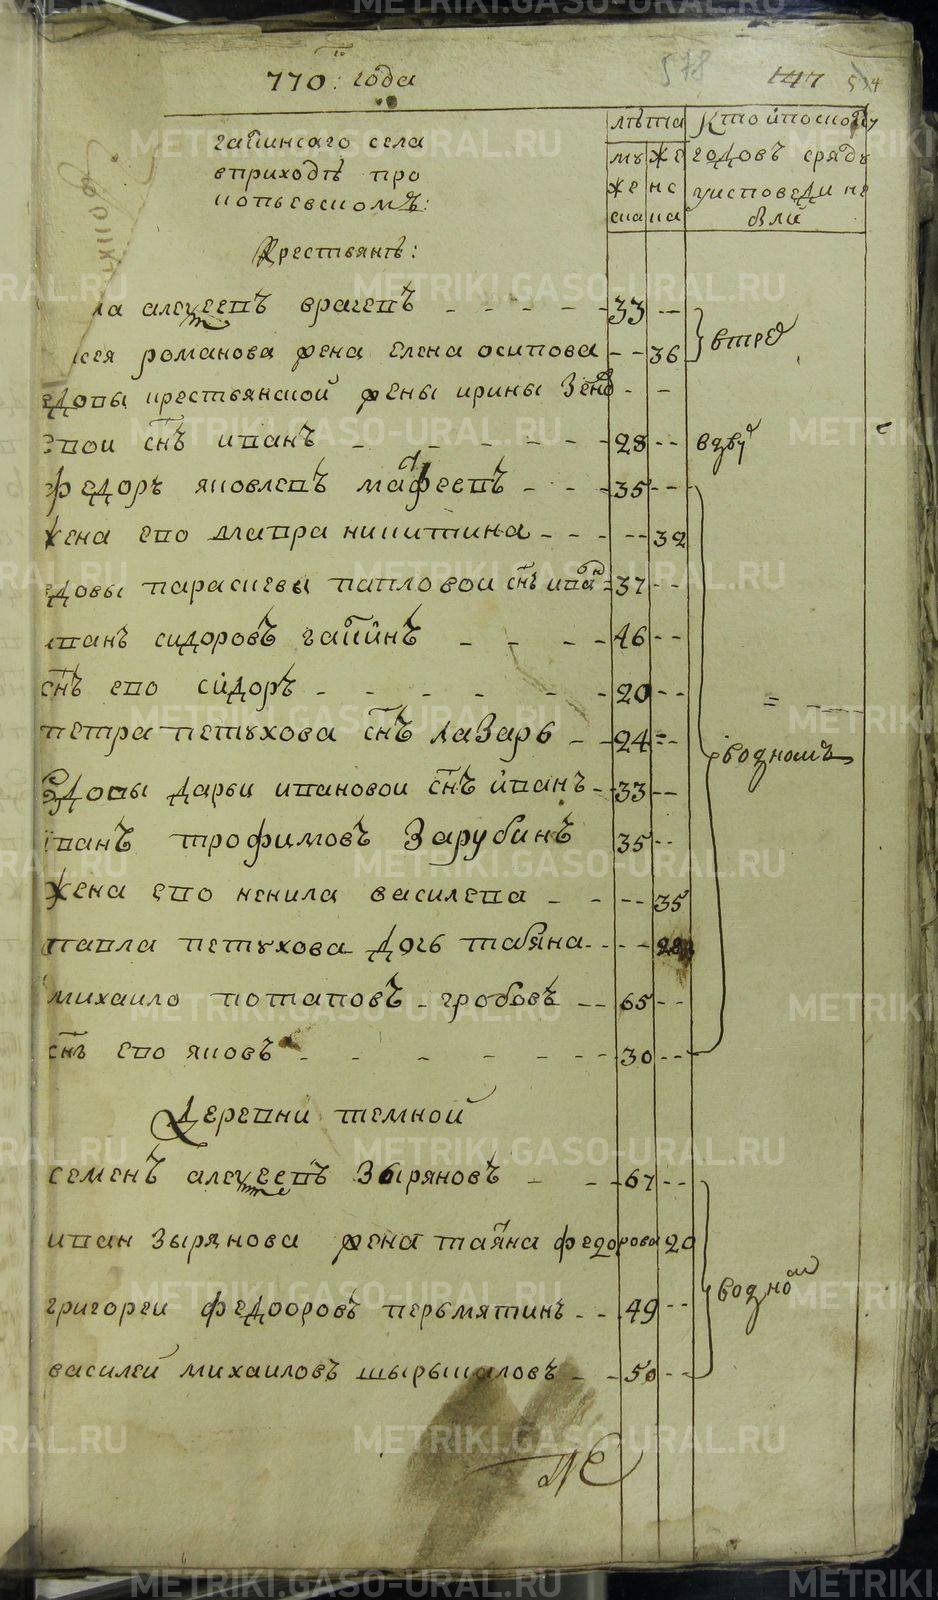 770: года
578
147
гашинсаго села
вприходѣ про
копьевскомъ:
лѣта
кто ипоскол
му
же
годовъ сряд
же
нс
уисповеди не
ска
ка
были
Крестьянѣ:
ла алеѯеевъ врачевъ - - - - - 33 - -
втред
сея романова жена елена осипова - - 36
едовы крестьянской жены ирины Зенов - -
евои снъ иванъ - - - - - - 28 - -
вдву
федоръ яковлевъ мафеевъ - - - 35 - - -
жена ево мавра никитина - - - - - 32
едовы параскевы павловои снъ иван - 37 - -
иванъ сидоровъ гашинъ - - - - 46 - -
снъ ево сидоръ - - - - - - 20 - -
петра петухова снъ лазарь - - 24 - -
водномъ
вдовы дарьи ивановои снъ иванъ - - 33 - -
иванъ трофимовъ Зарубинъ 35 - -
жена ево ненила василева - - - - 35
павла петухова дочь татьяна - - - - 28
михаило потаповъ - гробовъ - - 65 - -
снъ ево яковъ - - - - - - 30 - - -
Деревни темной
семенъ алеѯеевъ Зыряновъ - - - 67 - -
иван зырянова жена татьяна федорова 20
водном
григореи федооровъ перьмятинъ - - 49 - -
василей михаиловъ шырыкаловъ - - 50 - -